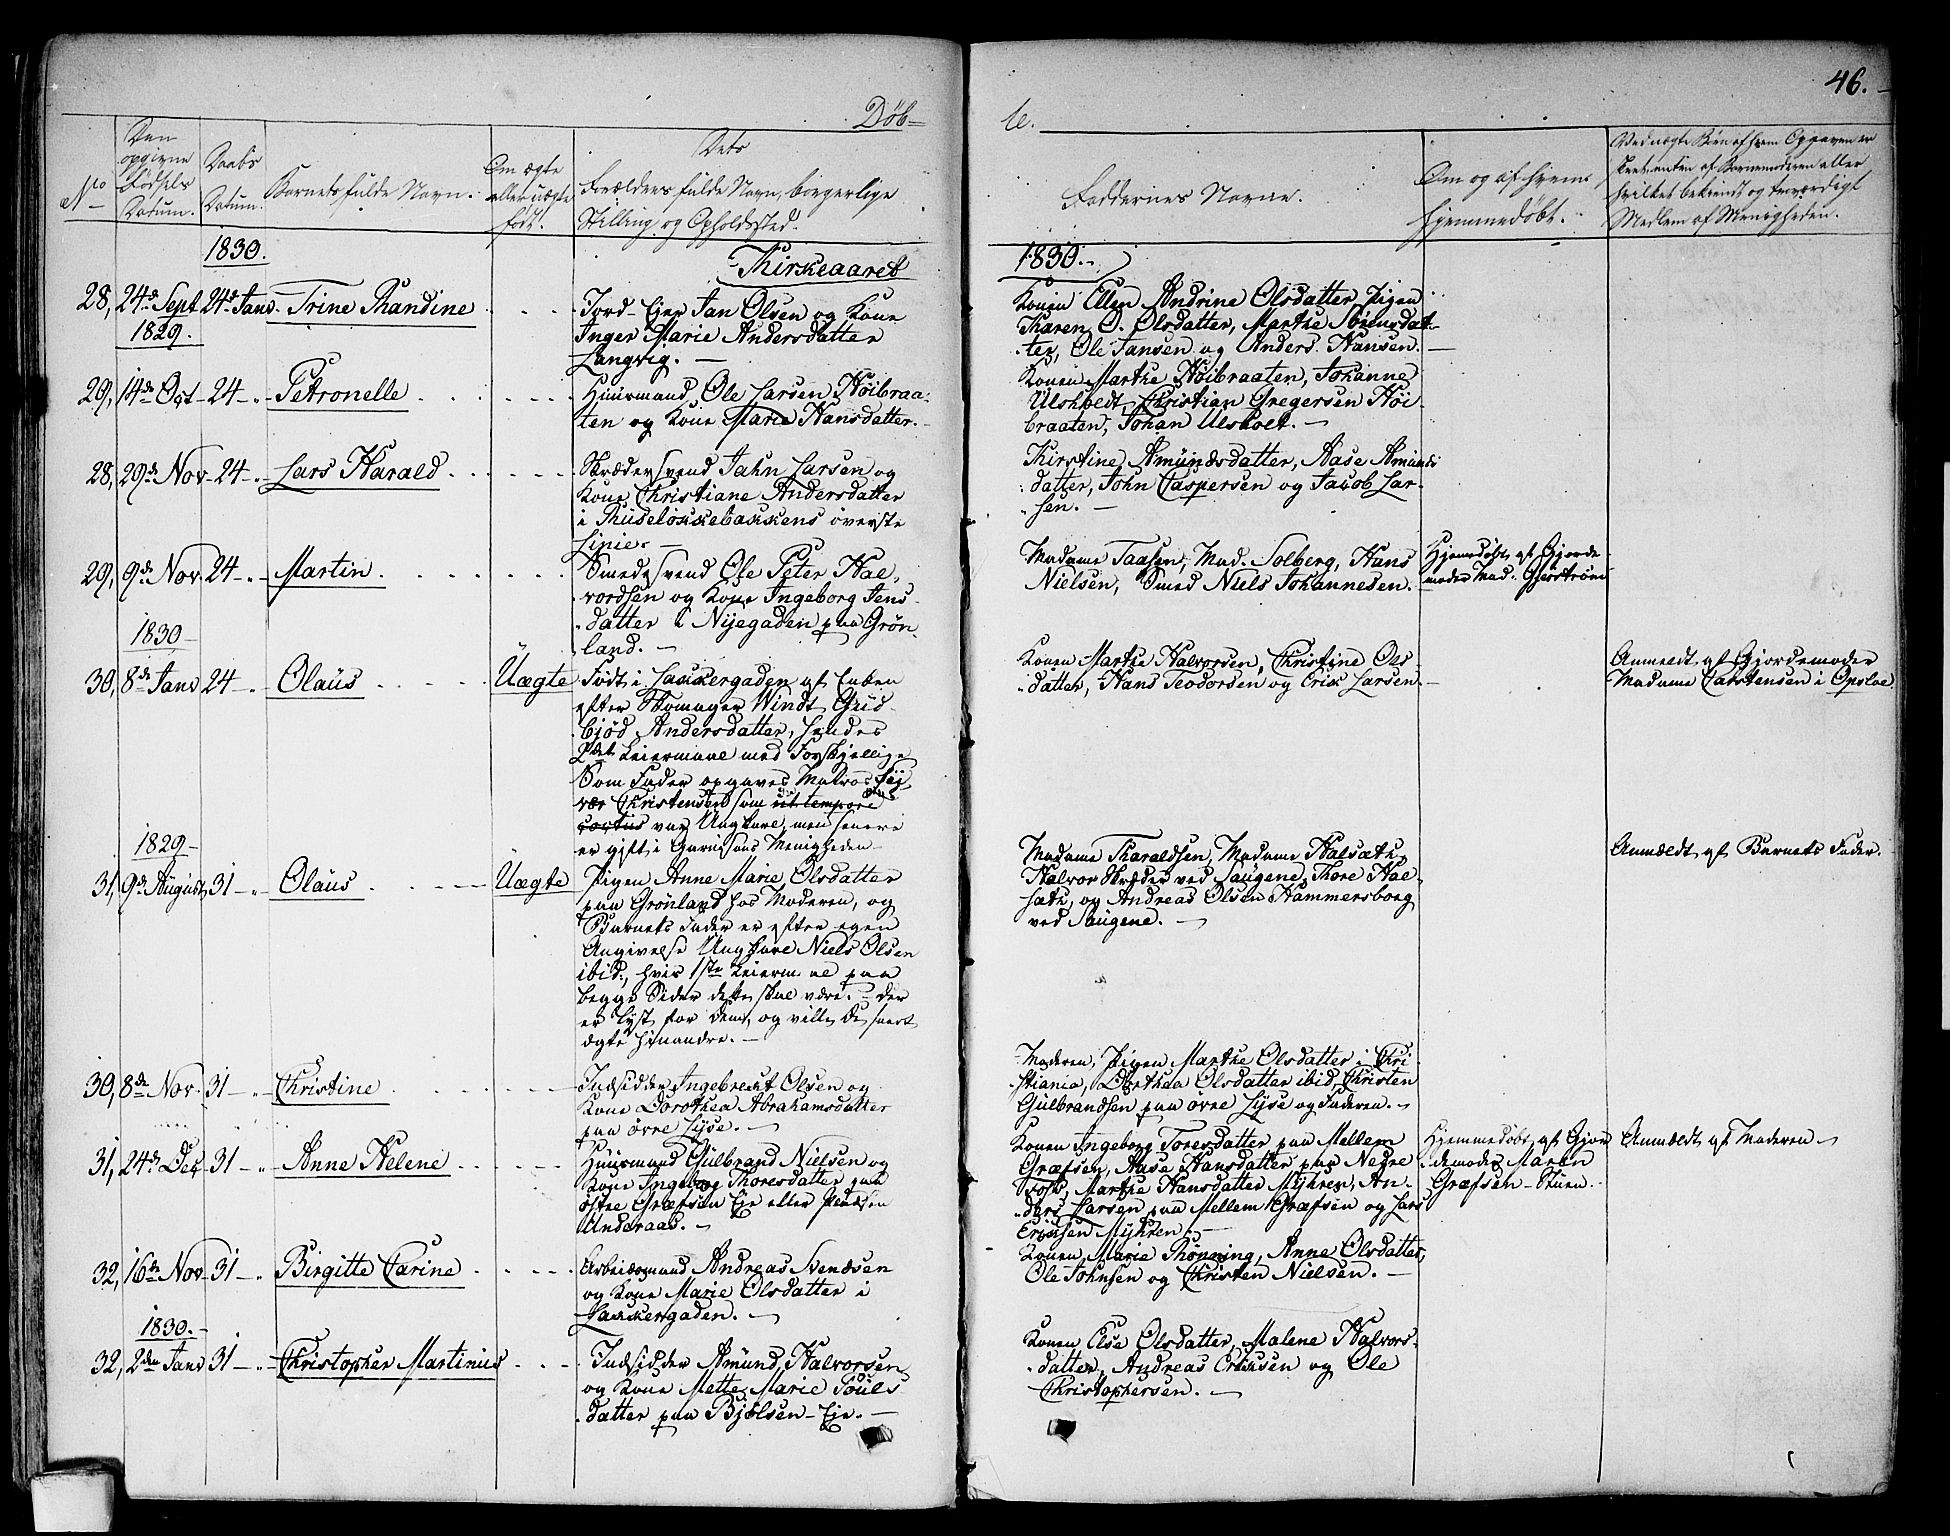 46.
Døb=
te.
No
Den
opgivne
Fødsels
Datum.
Daabs
Datum.
Barnets fulde Navn.
Om ægte
eller uægte
født.
Dets
Forældres fulde Navn, borgerlige
Stilling og Opholdssted.
Faddernes Navne.
Om og af hvem
hjemmedøbt.
Ved uægte Børn af hvem Opgaven er
skeet, enten af Barnemoderen eller
hvilket bekiendt og troværdigt
Medlem af Menigheden.
1830.
Kirkeaaret
1830.
28, 24de Sept 24de Janv. Trine Randine
1829.
Jord-Ejer Jan Olsen og Kone
Inger Marie Andersdatter
Langvig. —
Konen Ellen Andrine Olsdatter, Pigen
Karen O. Olsdatter, Marthe Sørensdat-
ter, Ole Jansen og Anders Hansen. —
29, 14de Oct - 24 - Petronelle
Huusmand Ole Larsen Høibraa-
ten og Kone Marie Hansdatter. —
Konen Marthe Høibraaten, Johanne
Ulsholdt, Christian Gregersen Høi-
braaten, Johan Ulsholt. —
28, 29de Nov - 24 - Lars Harald
Skrædersvend Jahn Larsen og
Kone Christiane Andersdatter
i Ruseløkkebakkens øverste
Linie. —
Kirstine Amundsdatter, Aase Amunds
datter, John Caspersen og Jacob Lar-
sen. —
29, 9de Nov 24 - Martin
Smedesvend Ole Peter Hal-
vordsen og Kone Ingeborg Jens-
datter i Nijegaden paa Grøn-
land. —
Madame Taasen, Mad. Solberg, Hans
Nielsen, Smed Niels Johannesen. —
Hjemmedøbt af Gjorde-
moder Mad. Gjerstrøm
1830
30, 8de Janv 24 - Olaus
Uægte
Født i Lakkergaden af Enken
efter Skomager Windt Gud-
bjød Andersdatter, hendes
2det Leiermaal med Forskjellige
Som Fader opgaves Matros Sij-
vær Christensen som ut tempore
coctus var Ungkarl, men senere
er gift i Garnisons Menigheden —
Konen Marthe Halvorsen, Christine Ols-
datter, Hans Teodorsen og Erik Larsen. —
Anmeldt af Gjordemoder
Madame Carstensen i Opsloe
1829 —
31, 9de August 31 - Olaus
Uægte
Pigen Anne Marie Olsdatter
paa Grønland hos Moderen, og
Barnets Fader er efter egen
Angivelse Ungkarl Niels Olsen
ibid:, hvis 1ste Leierm al paa
begge Sider dette skal være. — Der
er lyst for dem, og ville de snart
ægte hinandre. —
Madame Tharaldsen, Madame Halsæth,
Halvor Skræder ved Saugene, Thore Hal-
sæth, og Andreas Olsen Hammersborg
ved Saugene. —
Anmeldt af Barnets Fader.
30, 8de Nov. 31 - Christine
Indsidder Ingebrect Olsen og
Kone Dorothea Abrahamsdatter
paa øvre Lyse. —
Moderen, Pigen Marthe Olsdatter i Chri-
stiania, Dorthea Olsdatter ibid, Christen
Gulbrandsen paa øvre Lyse og Faderen. —
31, 24de Dec 31 - Anne Helene
Huusmand Gulbrand Nielsen og
Kone Ingeborg Thoresdatter paa
østre Græfsen Eje eller Pladsen
Underaas. —
Konen Ingeborg Toresdatter paa Mellem
Græfsen, Aase Hansdatter paa Nedre
Marthe Hansdatter Myhren, An-
ders Larsen paa Mellem Græfsen og Lars
Eriksen Myhren. —
Hjemmedøbt af Gjor-
demoder Maren
Græfsen-Stuen.
Anmeldt af Moderen —
32, 16de Nov 31 - Birgitte Carine
Arbeidsmand Andreas Svendsen
og Kone Marie Olsdatter i
Lakkergaden. —
Konen Marie Rønning, Anne Olsdatter,
Ole Johnsen og Christen Nielsen. —
1830. —
32, 2den Janv 31 - Christopher Martinius
Indsidder Amund Halvorsen
og Kone Mette Marie Pouls
datter paa Bjølsen-Eje. —
Konen Else Olsdatter, Malene Halvors-
datter, Andreas Eriksen og Ole
Christophersen. —